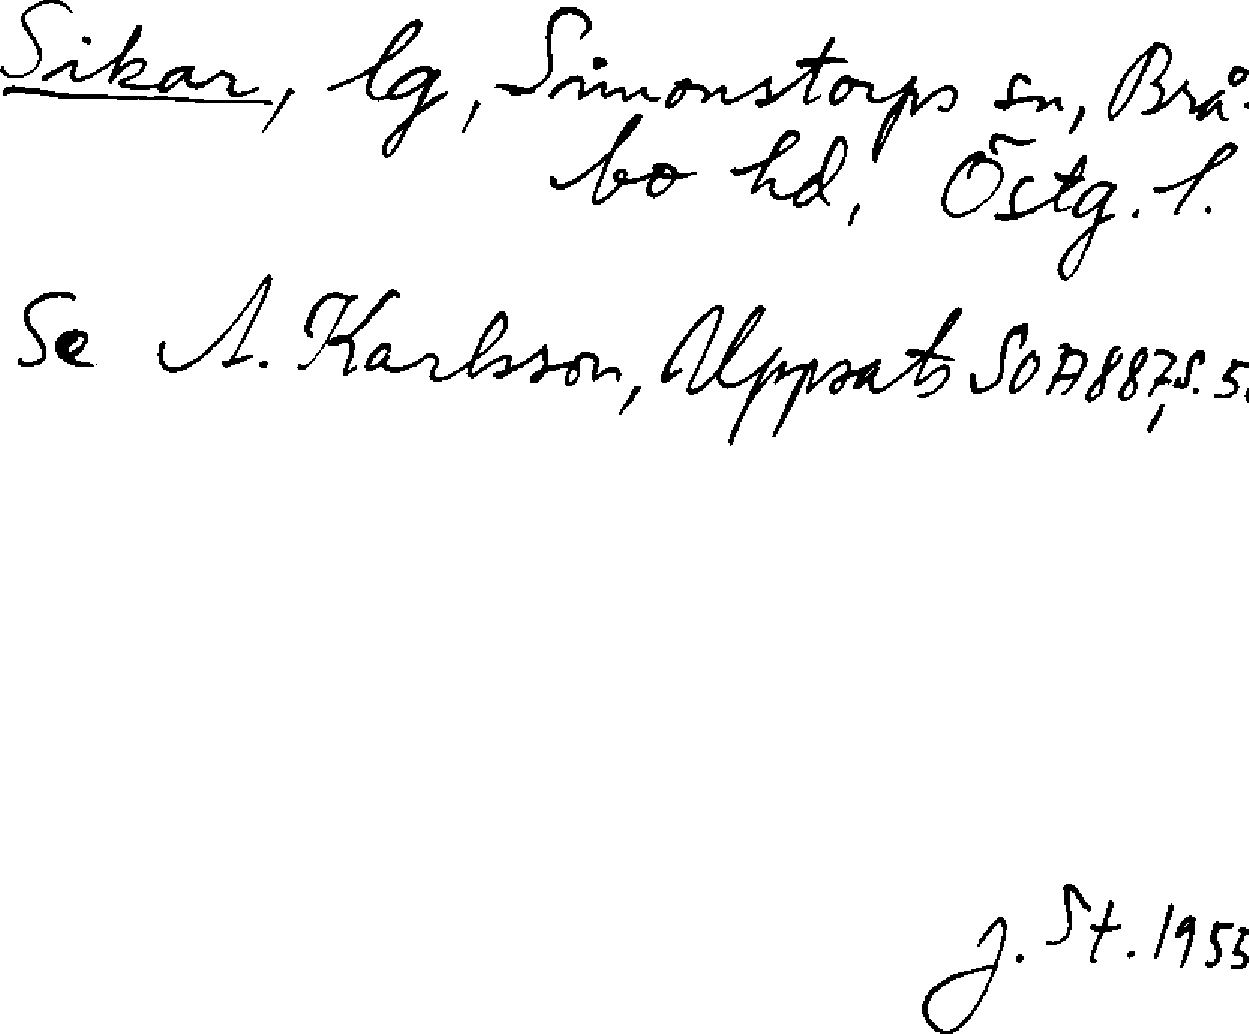 Sikar, lg, Simonstorps sn, Brå-
bo hd, Östg. l.
Se A. Karlsson, Uppsats SOA887, s. 5.
J. St. 1955